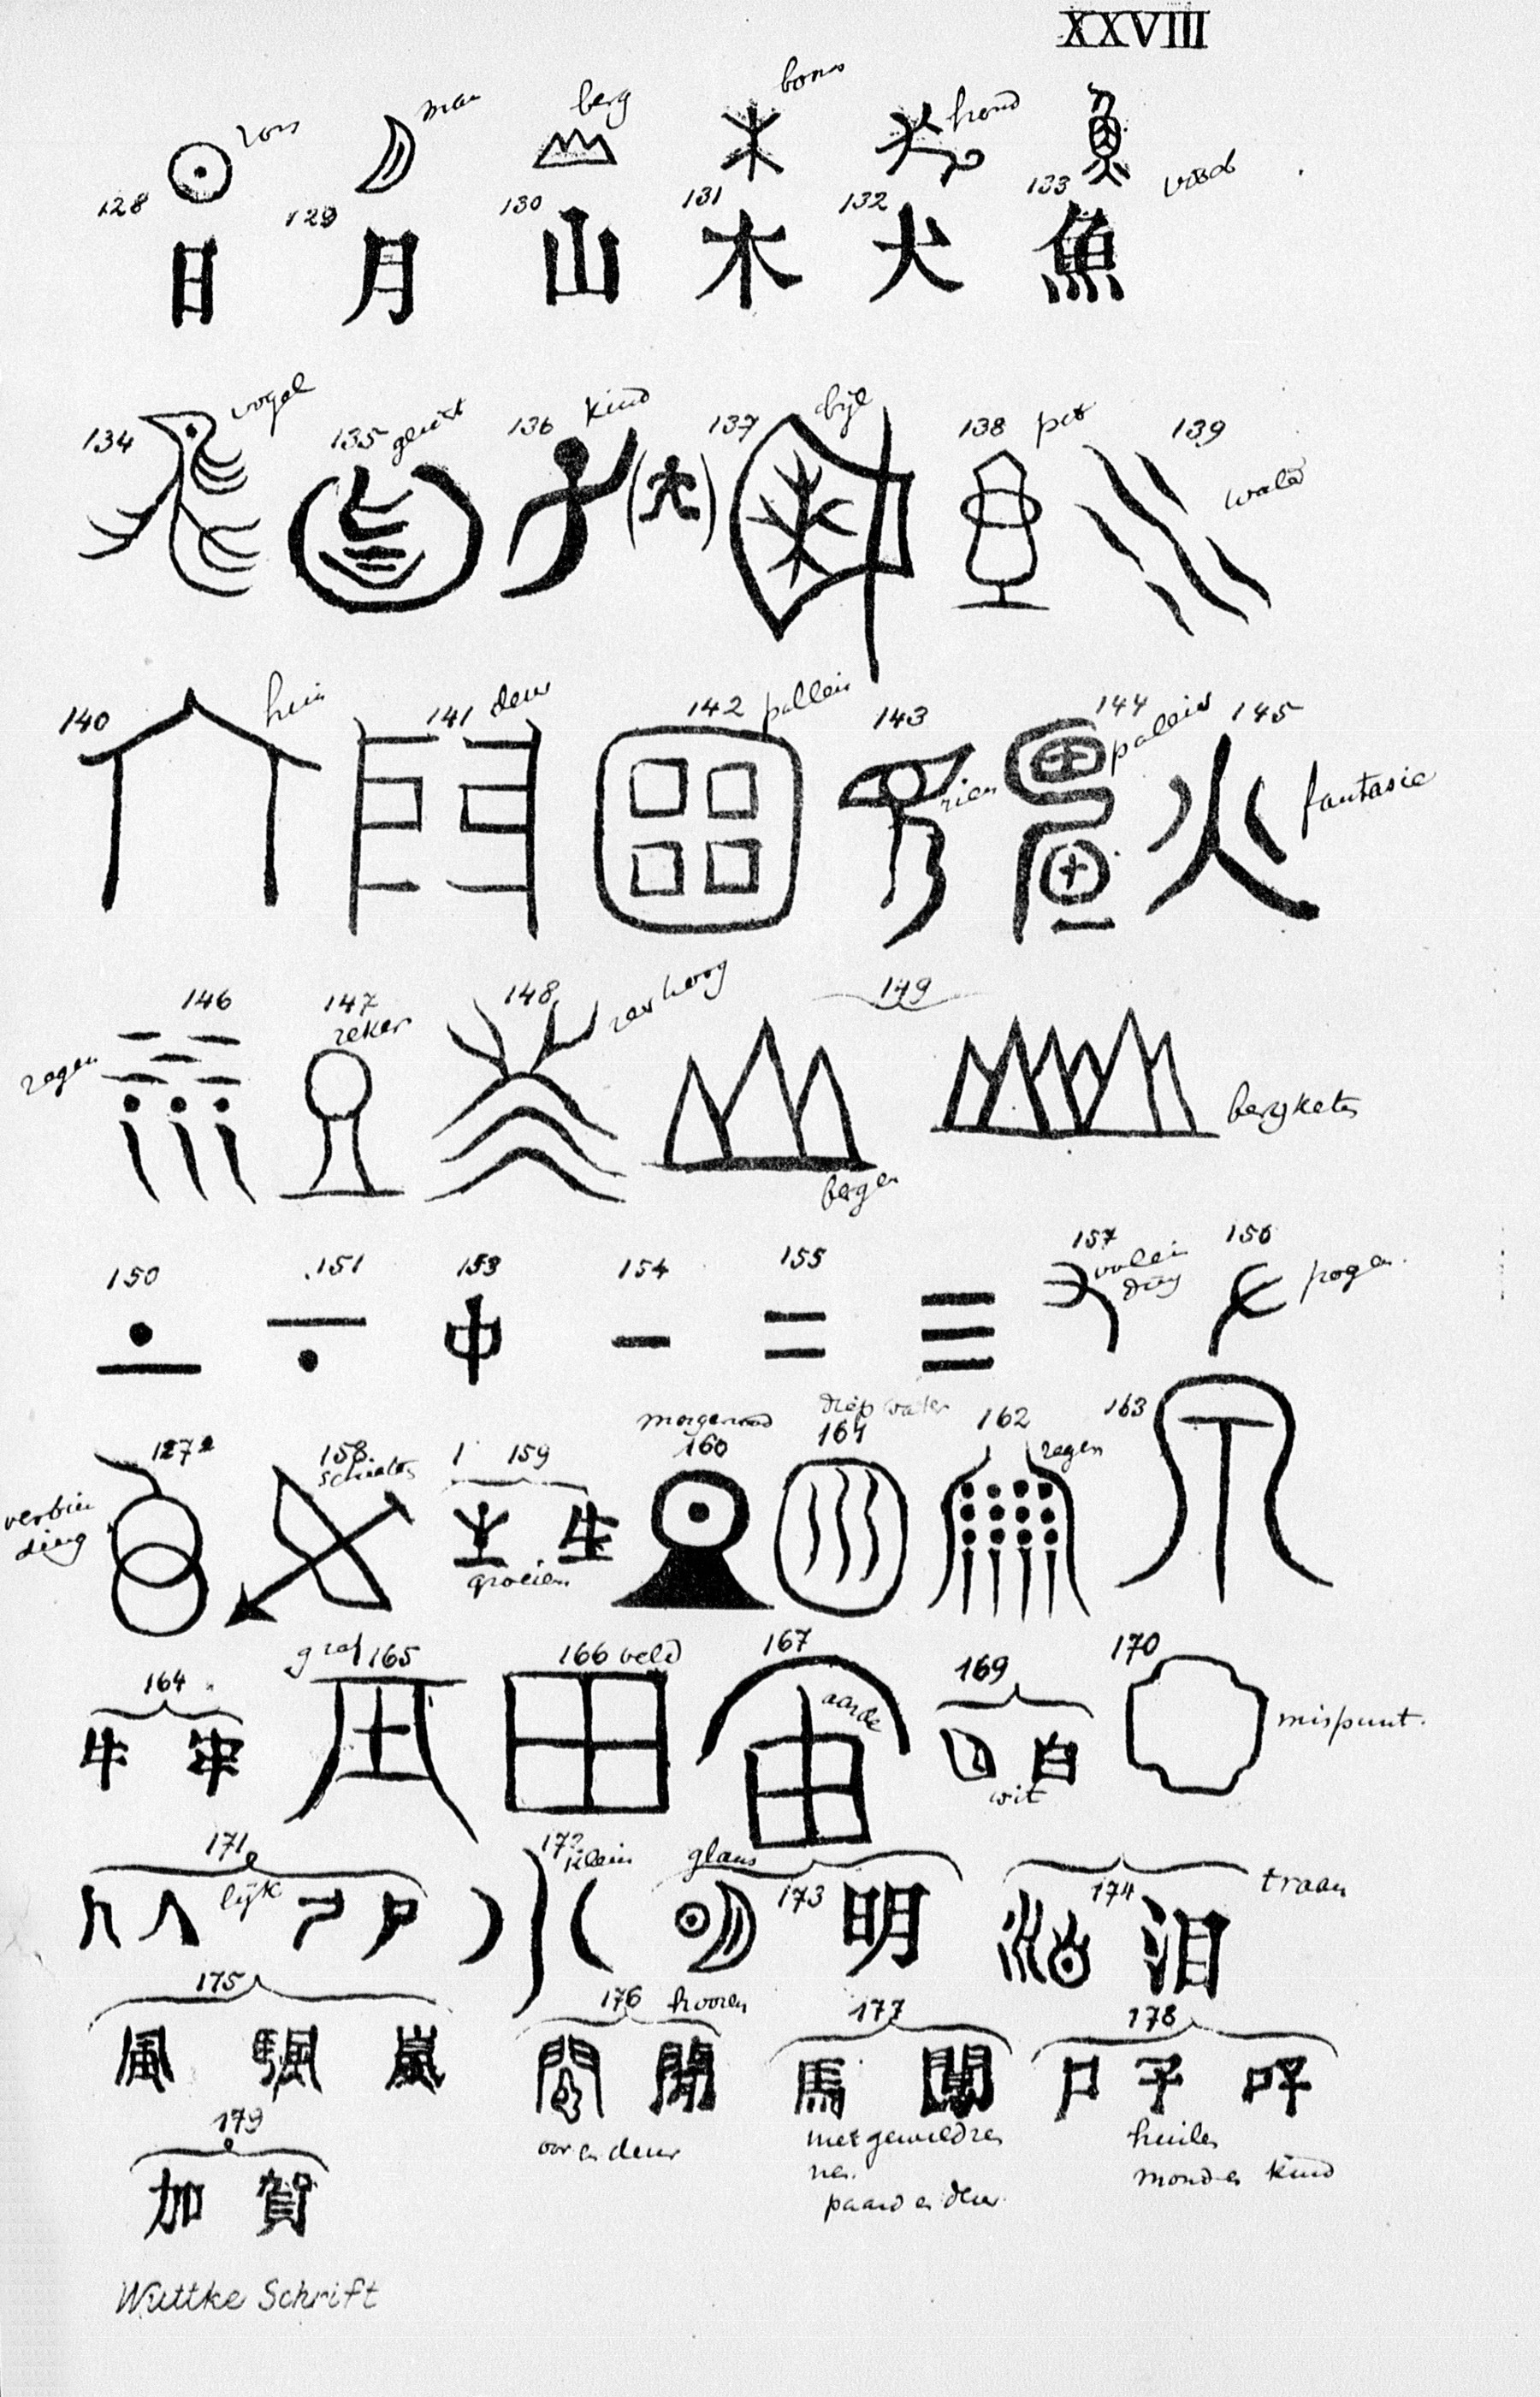 XXVIII
zon maan berg boom hond visch
128 129 130 131 132 133
日 月 山 木 犬 魚
134 vogel 135 136 kind 137 bijl 138 pot 139 water
140 huis 141 deur 142 palleis 143 zien 144 palleis 145 fantasie
146 regen 147 zeker 148 zeer hoog 149
bergen bergketen
150 151 153 154 155 157 156
中 一 二 三 pogen
1272 verbin ding 158 schieten 159 groeien 160 morgenrood 164 diep water 162 regen 163
生
164 graf 165 166 veld 167 aarde 169 wit 170 mispunt.
牛 牢 田 白
171 lijk 172 klein glans 173 174 traan
尸 明 泪
175 176 hooren 177 178
風 颿 嵐 聞 馬 闖 口 子 呼
oor en deur
paard en deur
huilen
mond en kind
179
加 賀
Wuttke Schrift